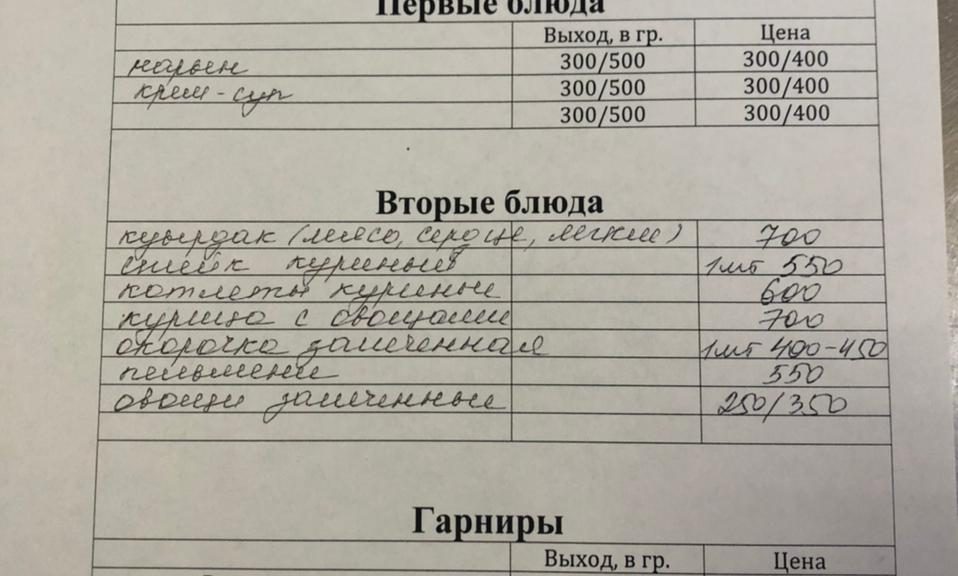 Первые блюда
Выход, в гр. Цена
нарын 300/500 300/400
крем-суп 300/500 300/400
300/500 300/400
Вторые блюда
куырдак (мясо, сердце, легкие) 700
стейк куриный 1шт 550
котлеты куриные 600
курица с овощами 700
окорочка запеченная 1шт 400-450
пельмени 550
овощи запеченные 250/350
Гарниры
Выход, в гр. Цена